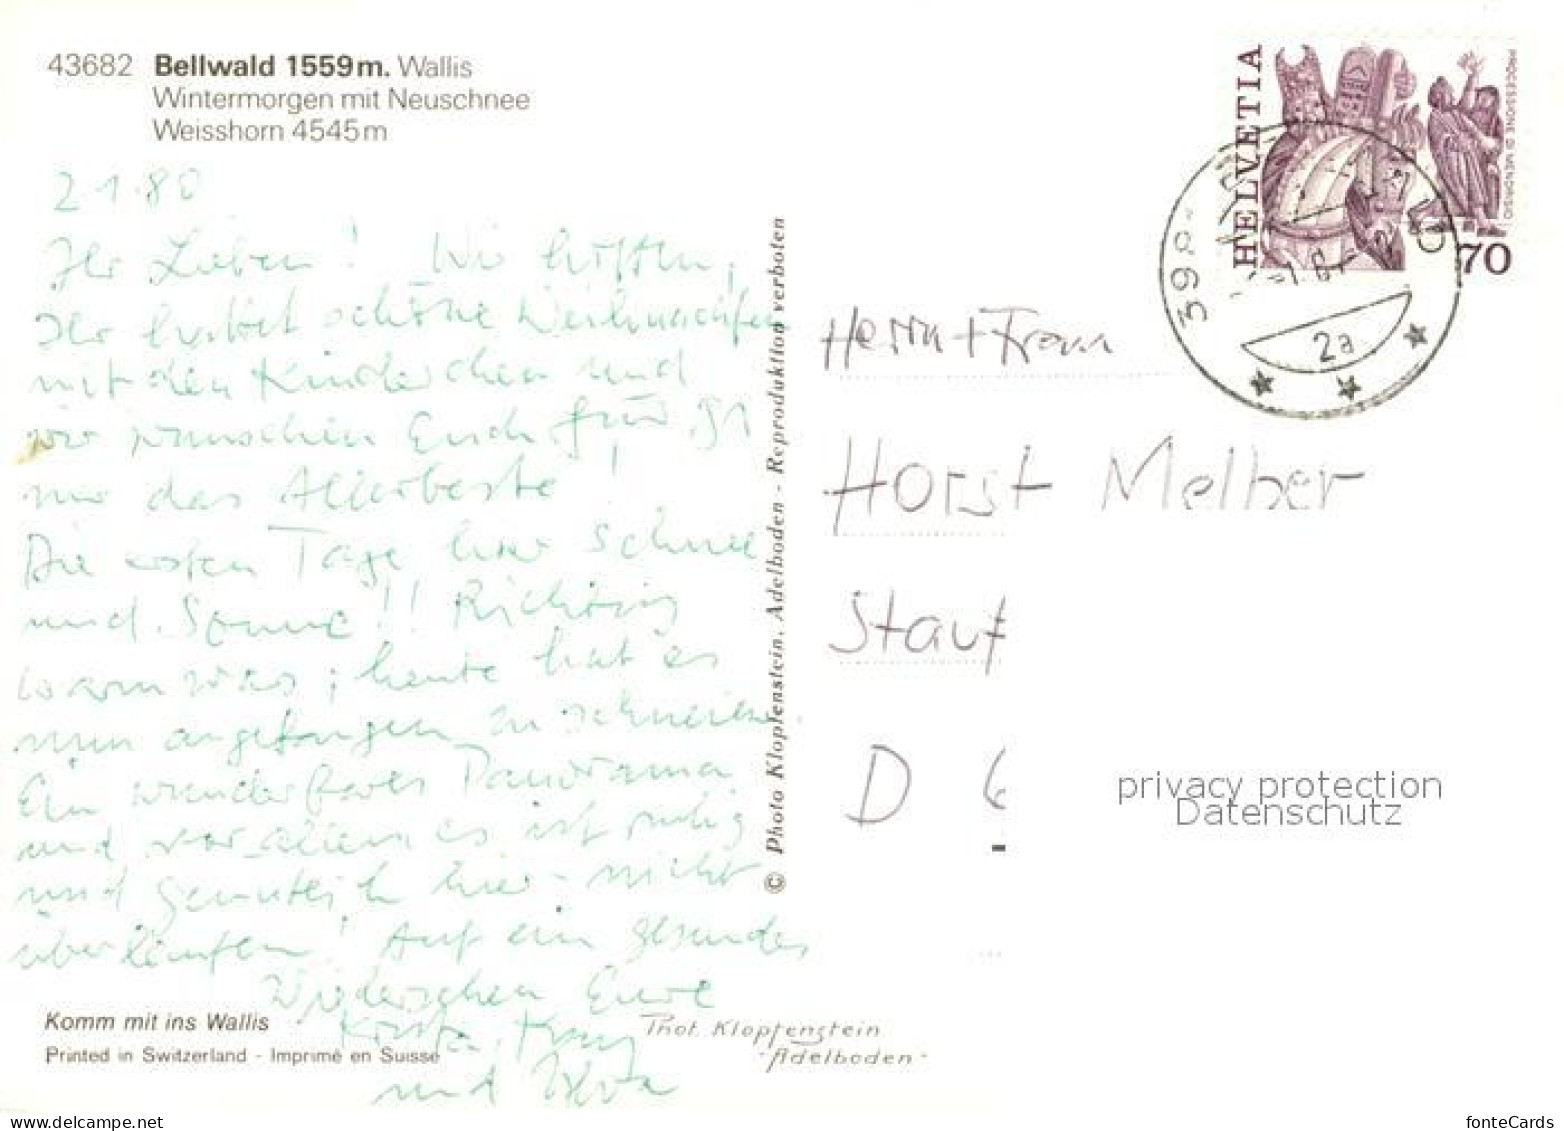 43682 Bellwald 1559m. Wallis
Wintermorgen mit Neuschnee
Weisshorn 4545m
2.1.80
Ihr Lieben! Wir hofften,
Ihr hattet schöne Weihnachten
mit den Kinderchen und
wir wünschen Euch für 81
nur das Allerbeste!
Die ersten Tage hier Schnee
und Sonne!! Richtig
warm war's; heute hat es
nun angefangen zu schneien.
Ein wunderbares Panorama
und vor allem es ist ruhig
und gemütlich hier - nicht
überlaufen! Auf ein gesundes
Wiedersehen Eure
und
Komm mit ins Wallis
Printed in Switzerland - Imprimé en Suisse
© Photo Klopfenstein, Adelboden - Reproduktion verboten
Phot. Klopfenstein
-Adelboden-
HELVETIA
PROCESSIONE DI MENDRISIO
70
2a
Herrn + Frau
Horst Melber
Stauf
D 6
privacy protection
Datenschutz
www.delcampe.net
fonteCards